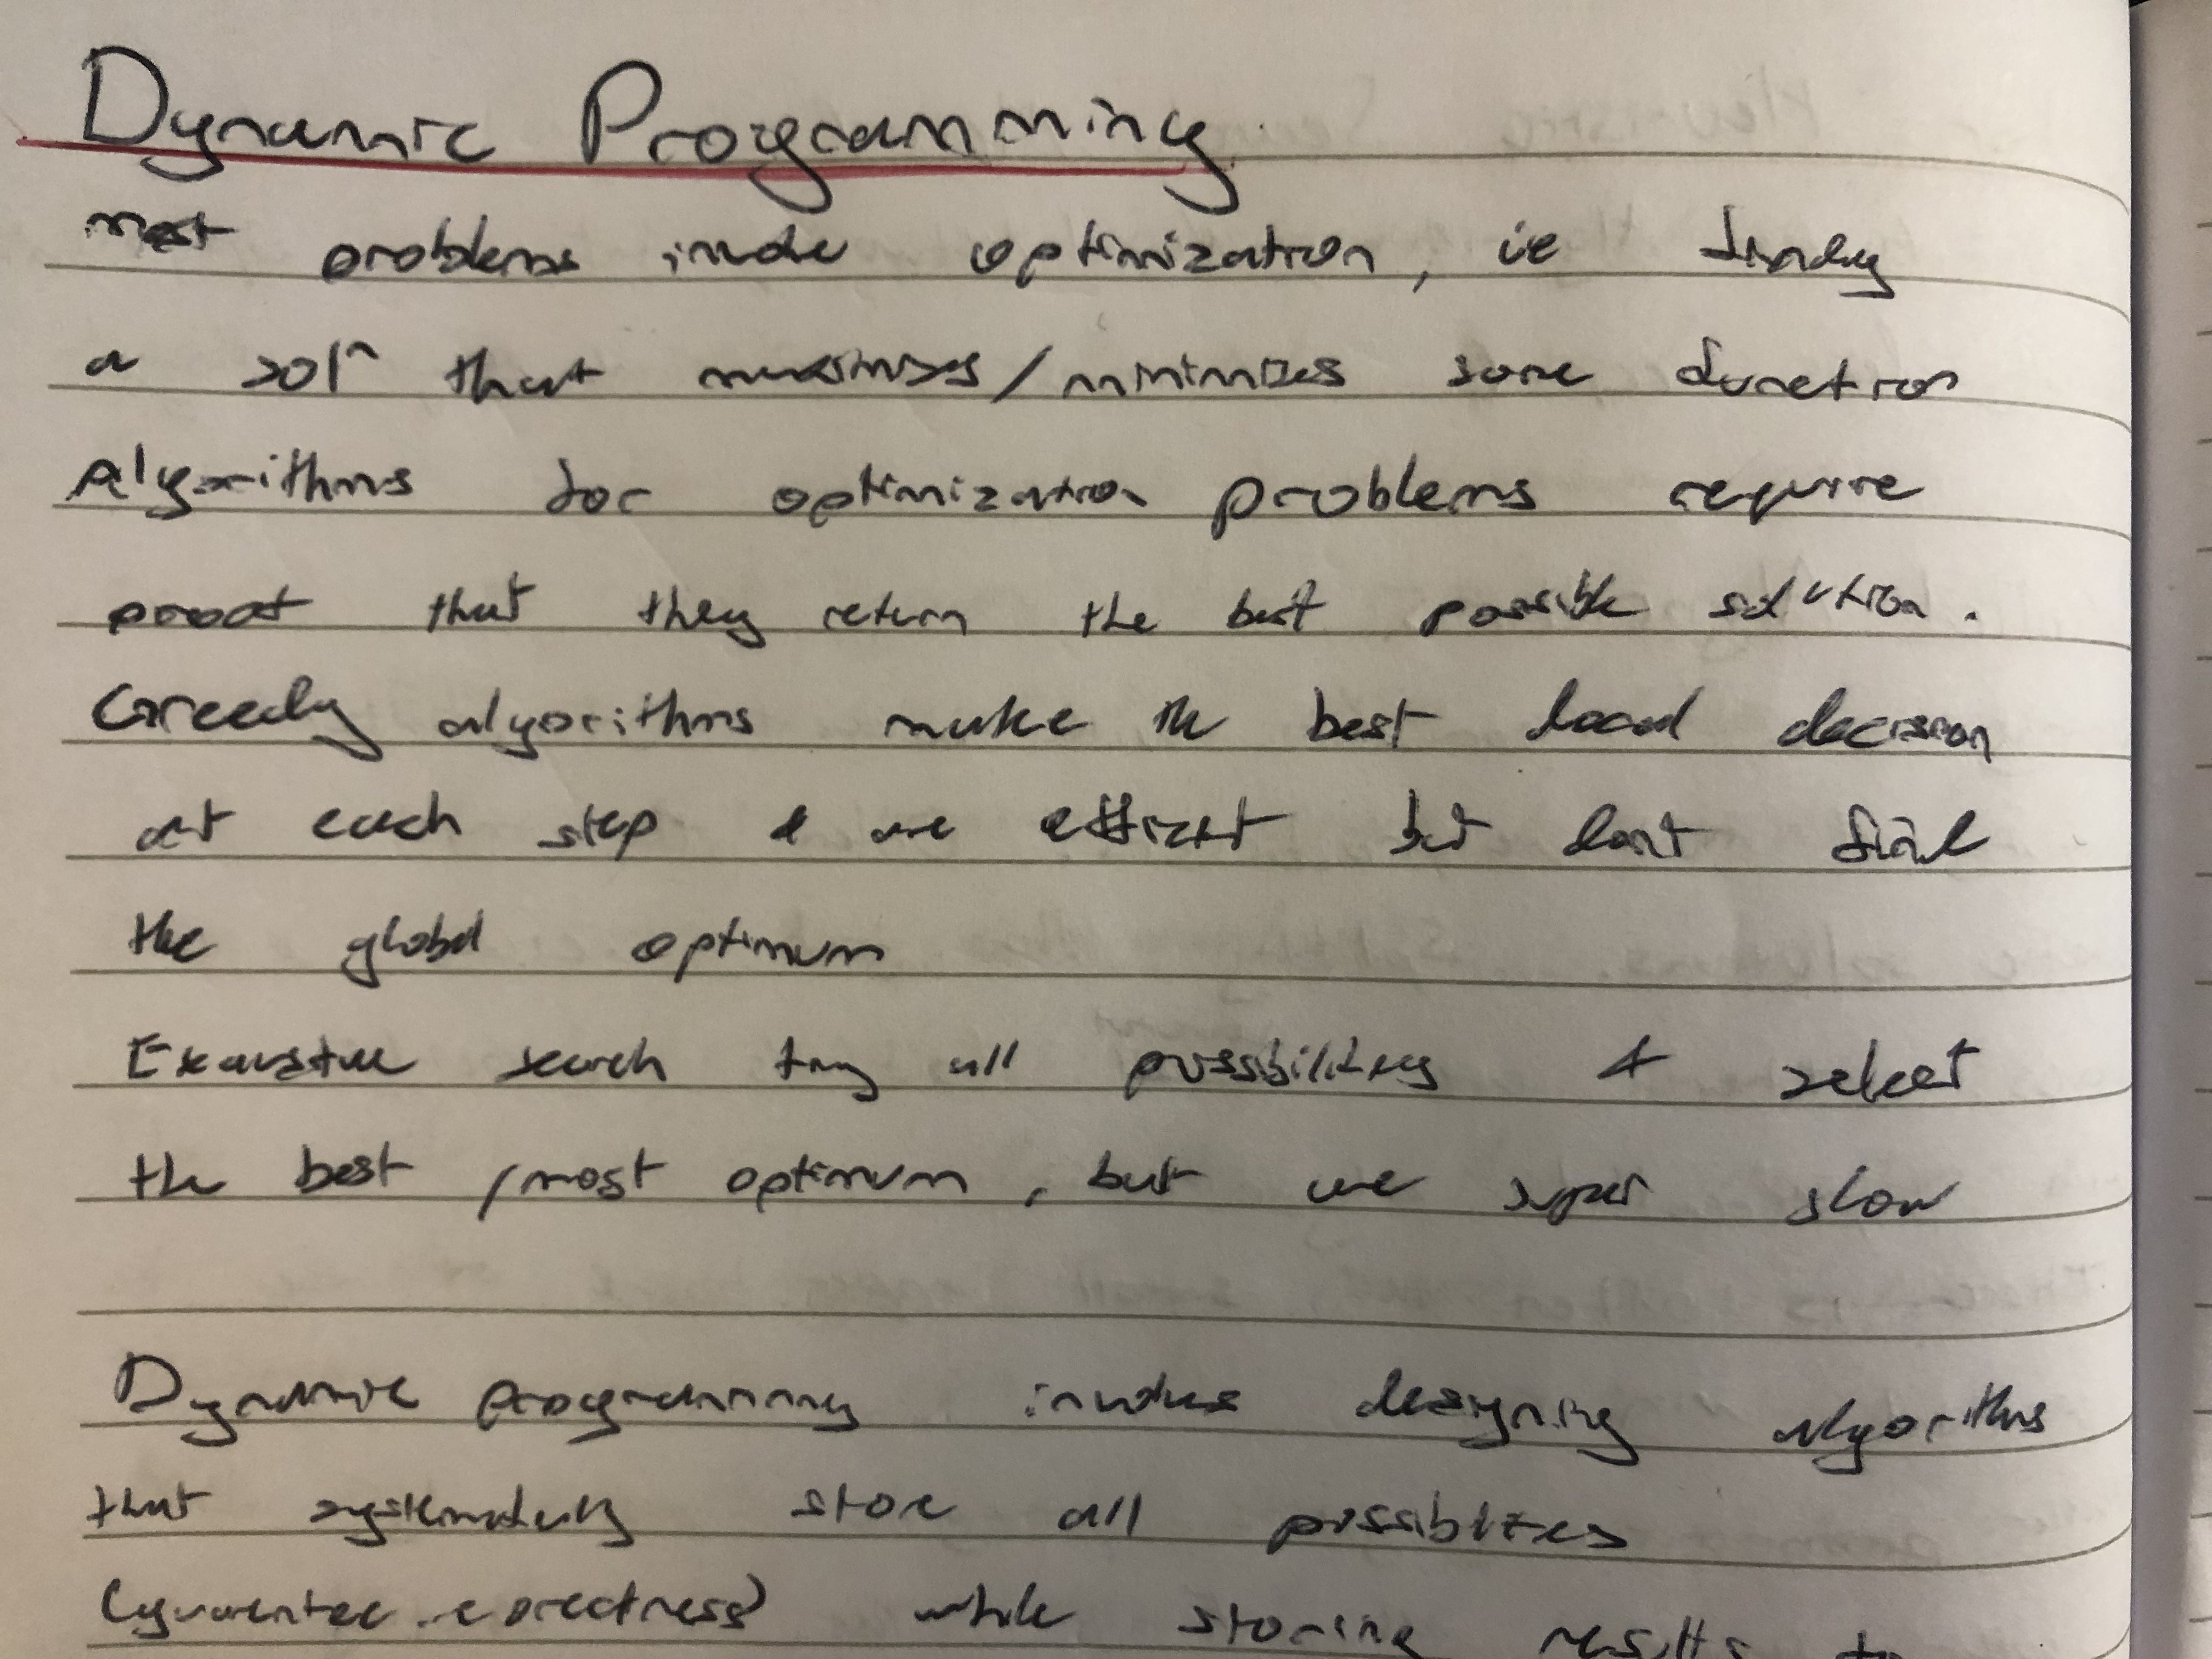 Dynamic Programming
most problems involve optimization, ie finding
a solⁿ that maximizes/minimizes some function
Algorithms for optimization problems require
proof that they return the best possible solution.
Greedy algorithms make the best local decision
at each step & are efficient but dont find
the global optimum
Exaustive search try all possibilities & select
the best /most optimum, but are super slow
Dynamic programming involves designing algorithms
that systematically store all possiblities
(guarentee correctness) while storing results to